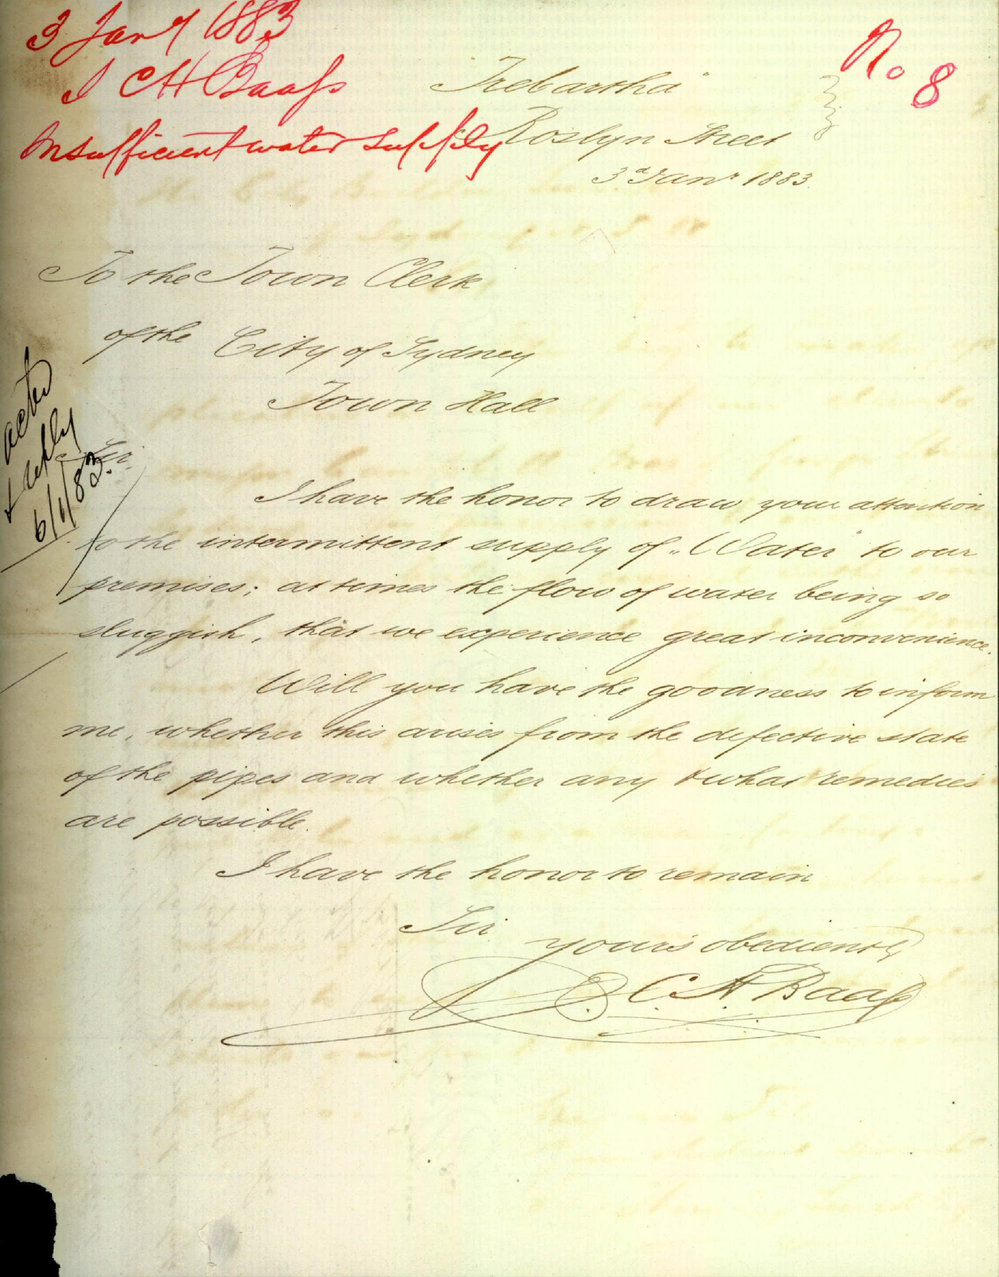 3 Jany 1883
J C H Baass
Insufficient water supply
No 8
"Trebartha"
Roslyn Street
3d Jany 1883.
To the Town Clerk
of the City of Sydney
Town Hall
ackd
+ reply
6/1/83.
Sir.
I have the honor to draw your attention
to the intermittent supply of "Water" to our
premises; at times the flow of water being so
sluggish, that we experience great inconvenience.
Will you have the goodness to inform
me, whether this arises from the defective state
of the pipes and whether any & what remedies
are possible.
I have the honor to remain
Sir.
yours obediently
C. H Baass